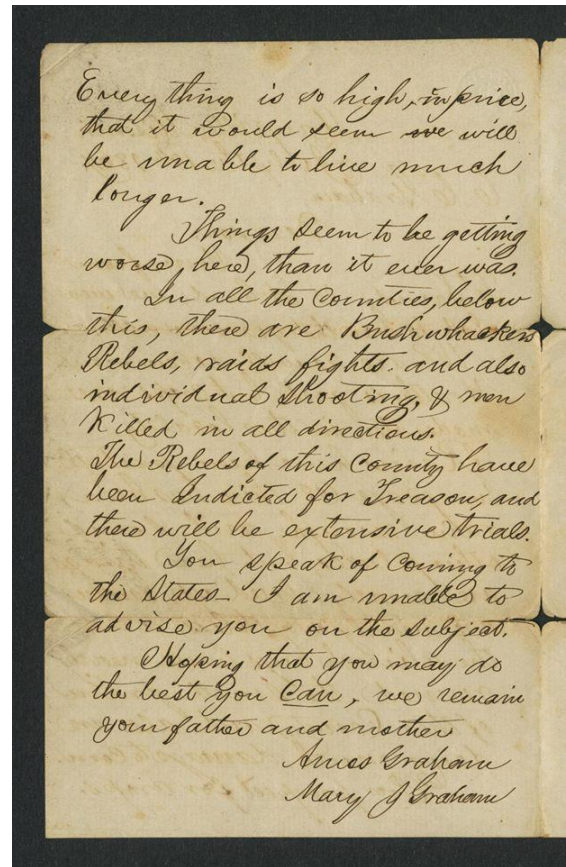 Every thing is so high, in price,
that it would seem we will
be unable to live much
longer.
Things seem to be getting
worse, here, than it ever was.
In all the Counties, below
this, there are Bushwhackers
Rebels, raids fights. and also
individual shooting, & men
Killed in all directions.
The Rebels of this County have
been Indicted for Treason, and
there will be extensive trials.
You speak of Coming to
the States I am unable to
advise you on the subject.
Hoping that you may do
the best you Can, we remain
your father and mother
Amos Graham
Mary J Graham